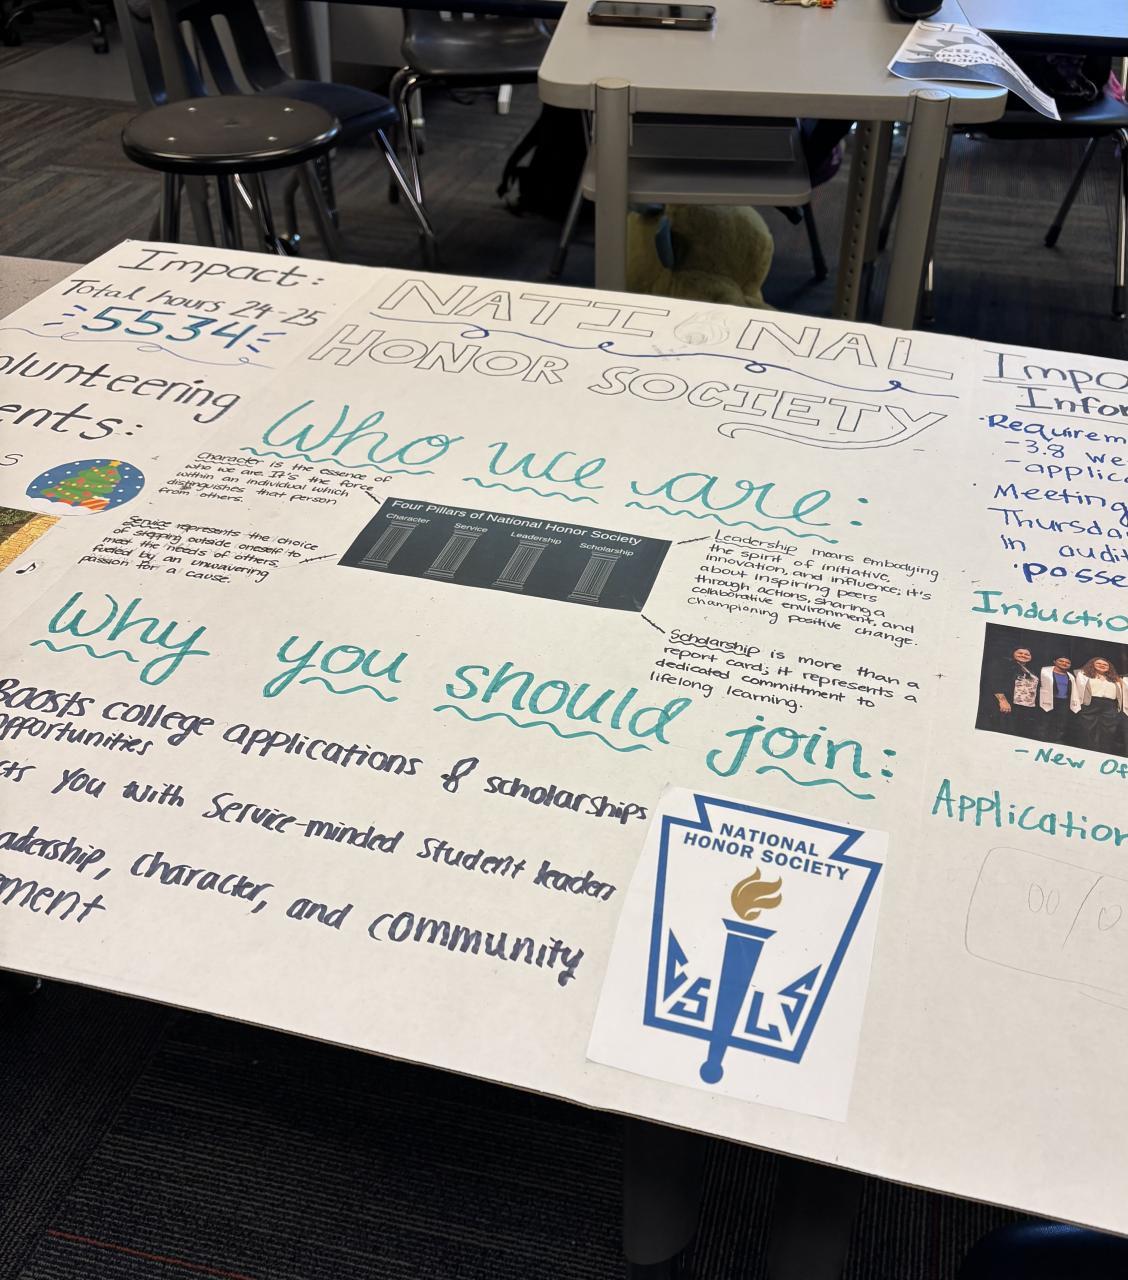 Impact:
Total hours 24-25
5534
olunteering
ents:
s
NATIONAL
HONOR SOCIETY
Who we are:
Character is the essence of
who we are. It's the force
within an individual which
distinguishes that person
from others.
Service represents the choice
of stepping outside oneself to
meet the needs of others,
fueled by an unwavering
passion for a cause.
Four Pillars of National Honor Society
Character
Service
Leadership
Scholarship
Leadership means embodying
the spirit of initiative,
innovation, and influence; it's
about inspiring peers
through actions, sharing a
collaborative environment, and
championing positive change.
Scholarship is more than a
report card; it represents a
dedicated commitment to
lifelong learning.
Why you should join:
Boosts college applications & scholarships
opportunities
cts you with service-minded student leaders
adership, character, and community
ement
NATIONAL
HONOR SOCIETY
CSLS
Impo
Infor
Requirem
-3.8 we
-applic
Meeting
Thursda
In audit
Posse
Inductio
-New Of
Application